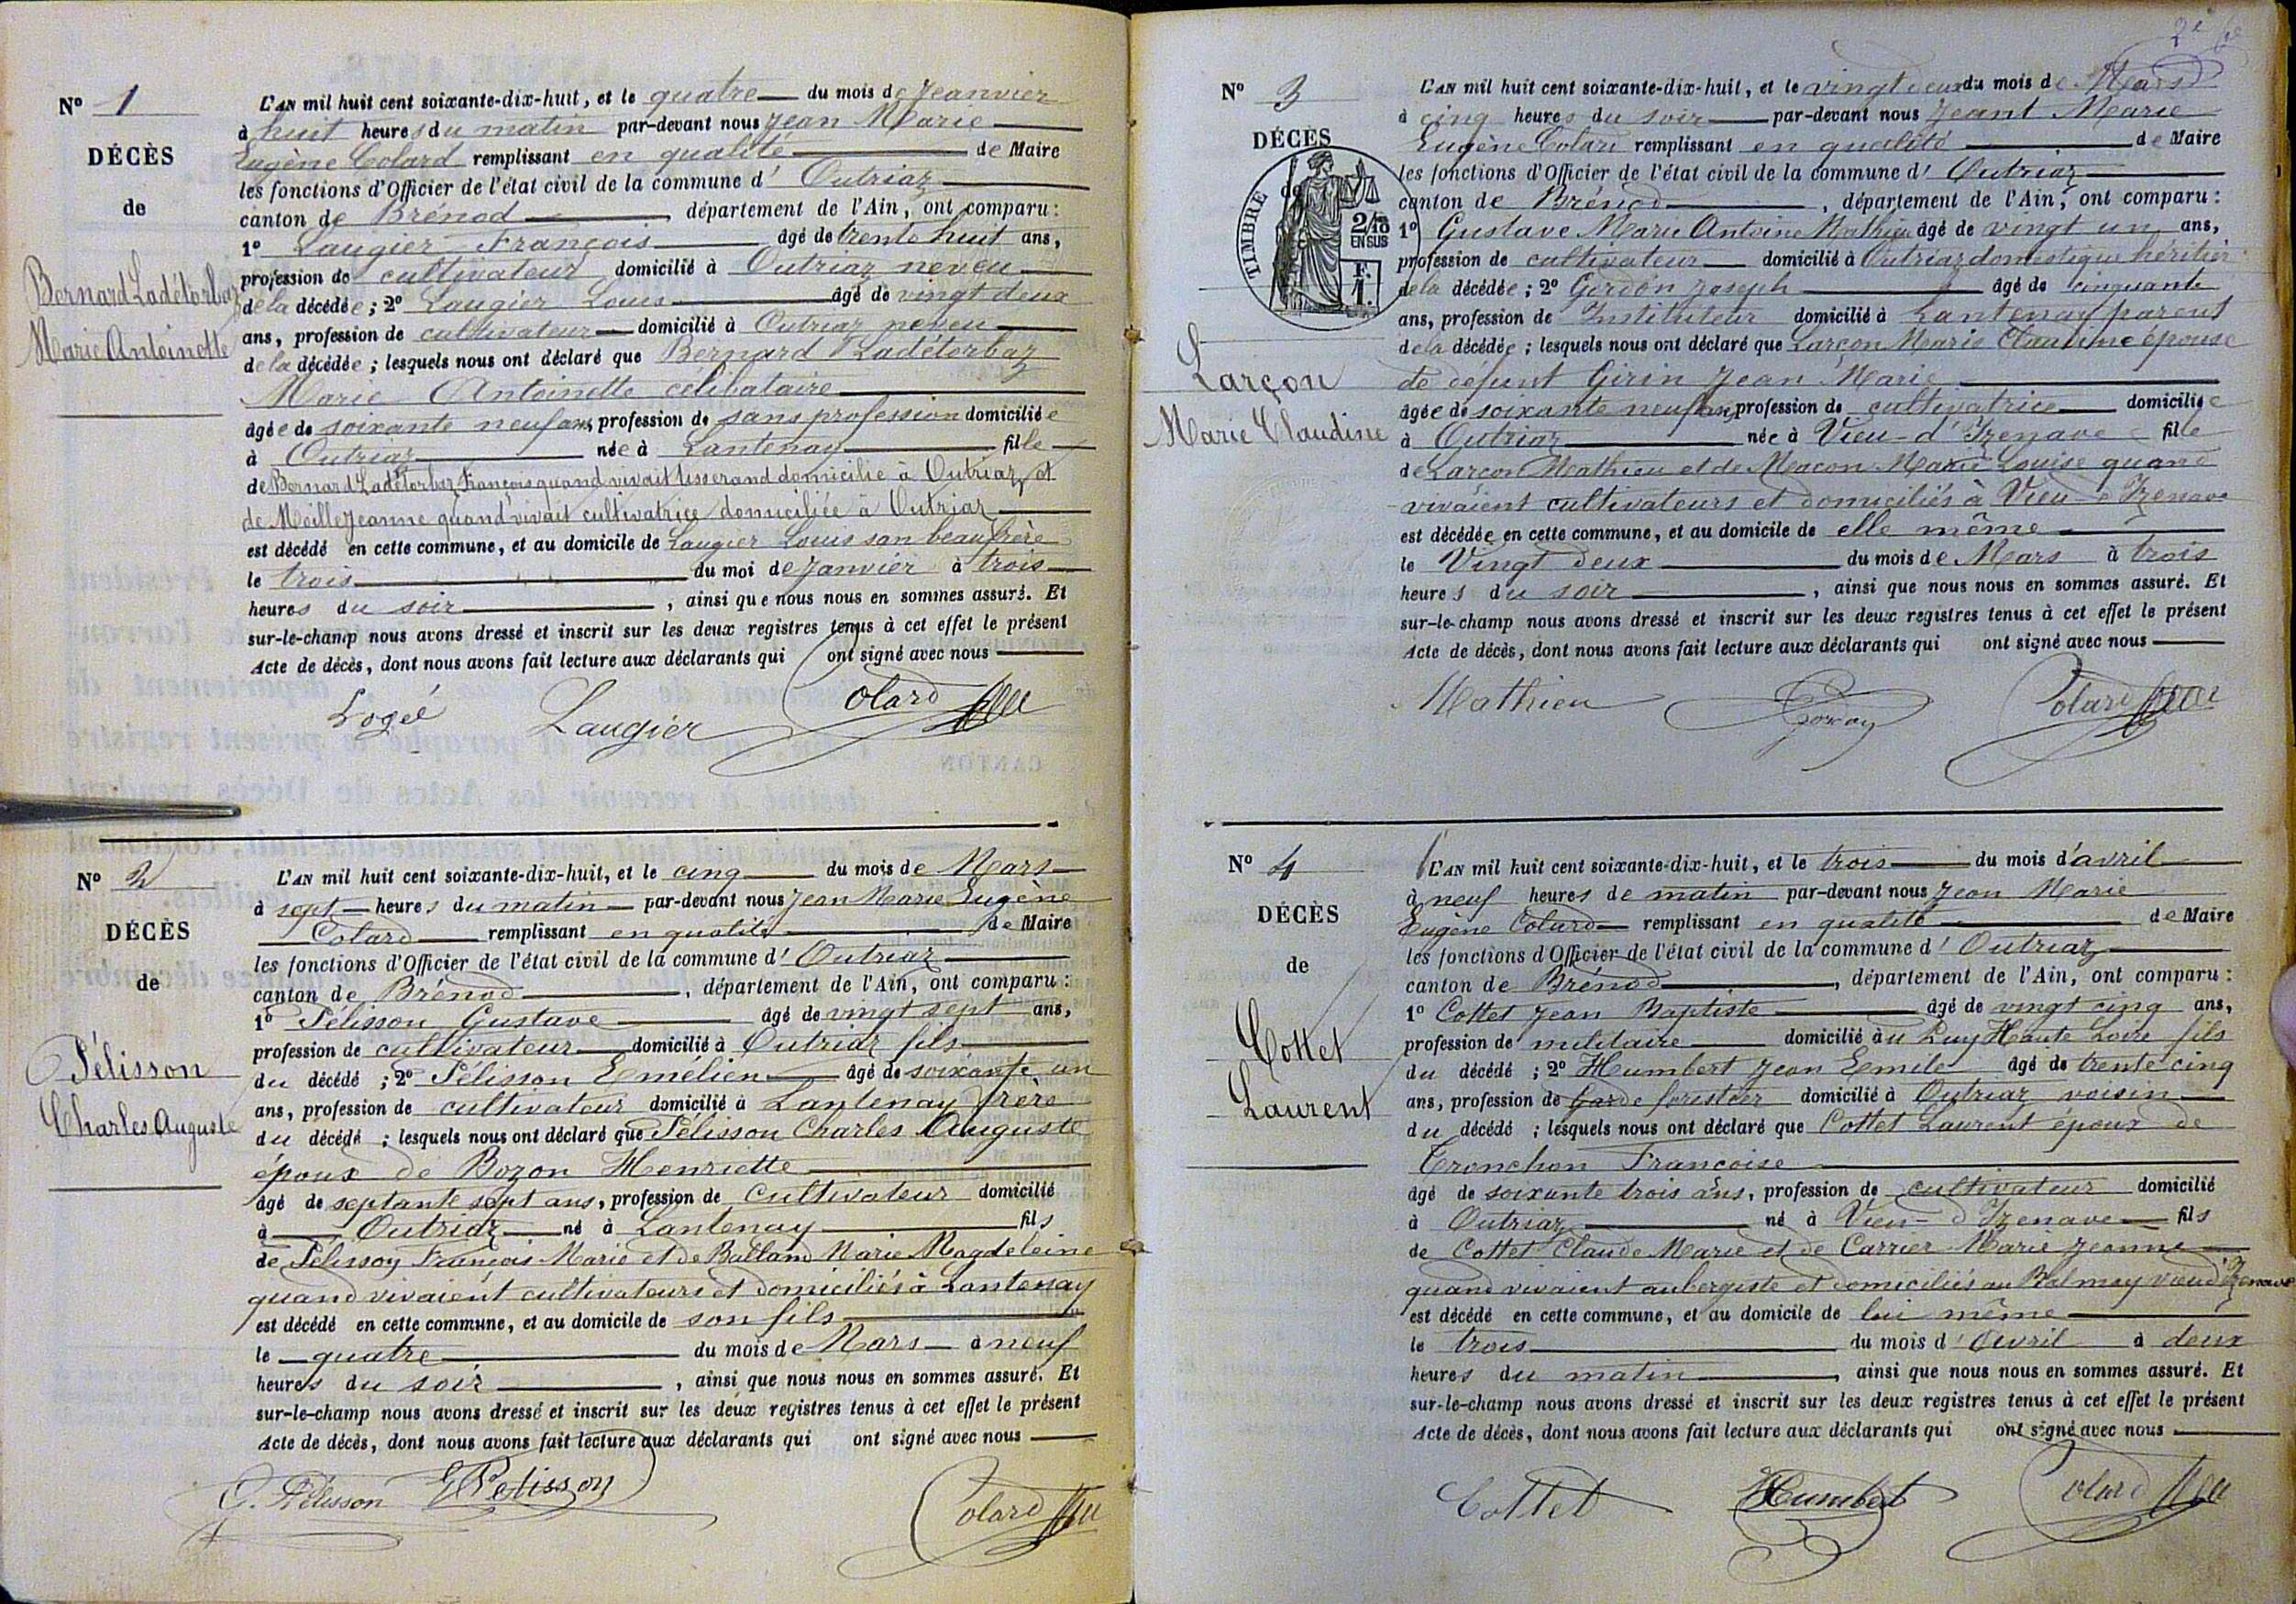 N° 1
DÉCÈS
de
Bernard Ladétorbaz
Marie Antoinette
L'AN mil huit cent soixante-dix-huit, et le quatre du mois de Jeanvier
à huit heures du matin par-devant nous Jean Marie
Eugène Colard remplissant en qualité de Maire
les fonctions d'Officier de l'état civil de la commune d' Outriaz
canton de Brénod, département de l'Ain, ont comparu :
1° Laugier François âgé de trente huit ans,
profession de cultivateur domicilié à Outriaz neveu
de la décédée ; 2° Laugier Louis âgé de vingt deux
ans, profession de cultivateur domicilié à Outriaz neveu
de la décédée ; lesquels nous ont déclaré que Bernard Ladétorbaz
Marie Antoinette célibataire
âgée de soixante neuf ans, profession de sans profession domiciliée
à Outriaz née à Lantenay fille
de Bernard Ladétorbaz François quand vivait tisserand domicilié à Outriaz et
de Moille Jeanne quand vivait cultivatrice domiciliée à Outriaz
est décédé en cette commune, et au domicile de Laugier Louis son beau frère
le trois du moi de Janvier à trois
heures du soir, ainsi que nous nous en sommes assuré. Et
sur-le-champ nous avons dressé et inscrit sur les deux registres tenus à cet effet le présent
Acte de décès, dont nous avons fait lecture aux déclarants qui ont signé avec nous
Logié Laugier Colard
N° 2
DÉCÈS
de
Pélisson
Charles Auguste
L'AN mil huit cent soixante-dix-huit, et le cinq du mois de Mars
à sept heures du matin par-devant nous Jean Marie Eugène
Colard remplissant en qualité de Maire
les fonctions d'Officier de l'état civil de la commune d' Outriaz
canton de Brénod, département de l'Ain, ont comparu :
1° Pélisson Gustave âgé de vingt sept ans,
profession de cultivateur domicilié à Outriaz fils
du décédé ; 2° Pélisson Emélien âgé de soixante un
ans, profession de cultivateur domicilié à Lantenay frère
du décédé ; lesquels nous ont déclaré que Pélisson Charles Auguste
époux de Bozon Henriette
âgé de septante sept ans, profession de Cultivateur domicilié
à Outriaz né à Lantenay fils
de Pélisson François Marie et de Balland Marie Magdeleine
quand vivaient cultivateurs et domiciliés à Lantenay
est décédé en cette commune, et au domicile de son fils
le quatre du mois de Mars à neuf
heures du soir, ainsi que nous nous en sommes assuré. Et
sur-le-champ nous avons dressé et inscrit sur les deux registres tenus à cet effet le présent
Acte de décès, dont nous avons fait lecture aux déclarants qui ont signé avec nous
G. Pélisson E Pelisson Colard
N° 3
DÉCÈS
de
TIMBRE
2/10
EN SUS
F.
1.
Larçon
Marie Claudine
L'AN mil huit cent soixante-dix-huit, et le vingt deux du mois de Mars
à cinq heures du soir par-devant nous Jeant Marie
Eugène Colard remplissant en qualité de Maire
les fonctions d'Officier de l'état civil de la commune d' Outriaz
canton de Brénod, département de l'Ain, ont comparu :
1° Gustave Marie Antoine Mathieu âgé de vingt un ans,
profession de cultivateur domicilié à Outriaz domestique héritier
de la décédée ; 2° Gordon Joseph âgé de cinquante
ans, profession de Instituteur domicilié à Lantenay parent
de la décédée ; lesquels nous ont déclaré que Larçon Marie Claudine épouse
de défunt Girin Jean Marie
âgée de soixante neuf ans, profession de cultivatrice domiciliée
à Outriaz née à Vieu-d'Izenave fille
de Larcon Mathieu et de Macon Marie Louise quand
vivaient cultivateurs et domiciliés à Vieu d'Izenave
est décédée en cette commune, et au domicile de elle même
le Vingt deux du mois de Mars à trois
heures du soir, ainsi que nous nous en sommes assuré. Et
sur-le-champ nous avons dressé et inscrit sur les deux registres tenus à cet effet le présent
Acte de décès, dont nous avons fait lecture aux déclarants qui ont signé avec nous
Mathieu Colard
N° 4
DÉCÈS
de
Cottet
Laurent
L'AN mil huit cent soixante-dix-huit, et le trois du mois d'avril
à neuf heures de matin par-devant nous Jean Marie
Eugène Colard remplissant en qualité de Maire
les fonctions d'Officier de l'état civil de la commune d' Outriaz
canton de Brénod, département de l'Ain, ont comparu :
1° Cottet Jean Baptiste âgé de vingt cinq ans,
profession de militaire domicilié au Puy Haute Loire fils
du décédé ; 2° Humbert Jean Emile âgé de trente cinq
ans, profession de Garde forestier domicilié à Outriaz voisin
du décédé ; lesquels nous ont déclaré que Cottet Laurent époux de
Tronchon Francoise
âgé de soixante trois ans, profession de cultivateur domicilié
à Outriaz né à Vieu-d'Izenave fils
de Cottet Claude Marie et de Carrier Marie Jeanne
quand vivaient aubergiste et domiciliés au Balmay vieu d'Izenave
est décédé en cette commune, et au domicile de lui même
le trois du mois d'Avril à deux
heures du matin, ainsi que nous nous en sommes assuré. Et
sur-le-champ nous avons dressé et inscrit sur les deux registres tenus à cet effet le présent
Acte de décès, dont nous avons fait lecture aux déclarants qui ont signé avec nous
Cottet Humbert Colard